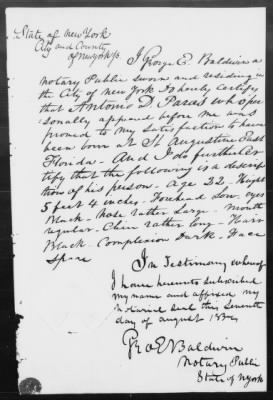 State of New York
City and County
of New York ss.
I George E. Baldwin a
notary Public sworn and residing in
the City of New York Do hereby certify
that Antonio D. Paras who per
sonally appeared before me was
proved to my satisfaction to have
been born at St Augustine East
Florida - And I do further Cer
tify that the following is a descrip
tion of his person. Age 22. Height
5 feet 4 inches. Forehead Low, eyes
Black - nose rather Large - mouth
regular. Chin rather long - Hair
Black - Complexion Dark. Face
Spare
In Testimony whereof
I have hereunto subscribed
my name and affixed my
Notarial seal this seventh
day of august
Geo E Baldwin
Notary Public
State of N York